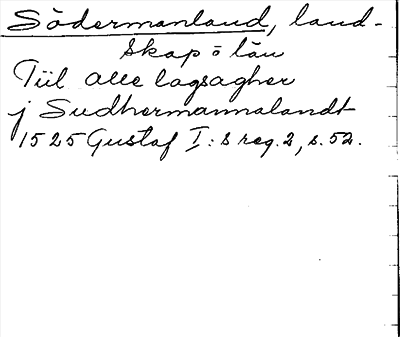 Södermanland, land-
skap o län
Tiil alle lagsagher
j Sudhermannalandt
1525 Gustaf I:s reg. 2, s. 52.